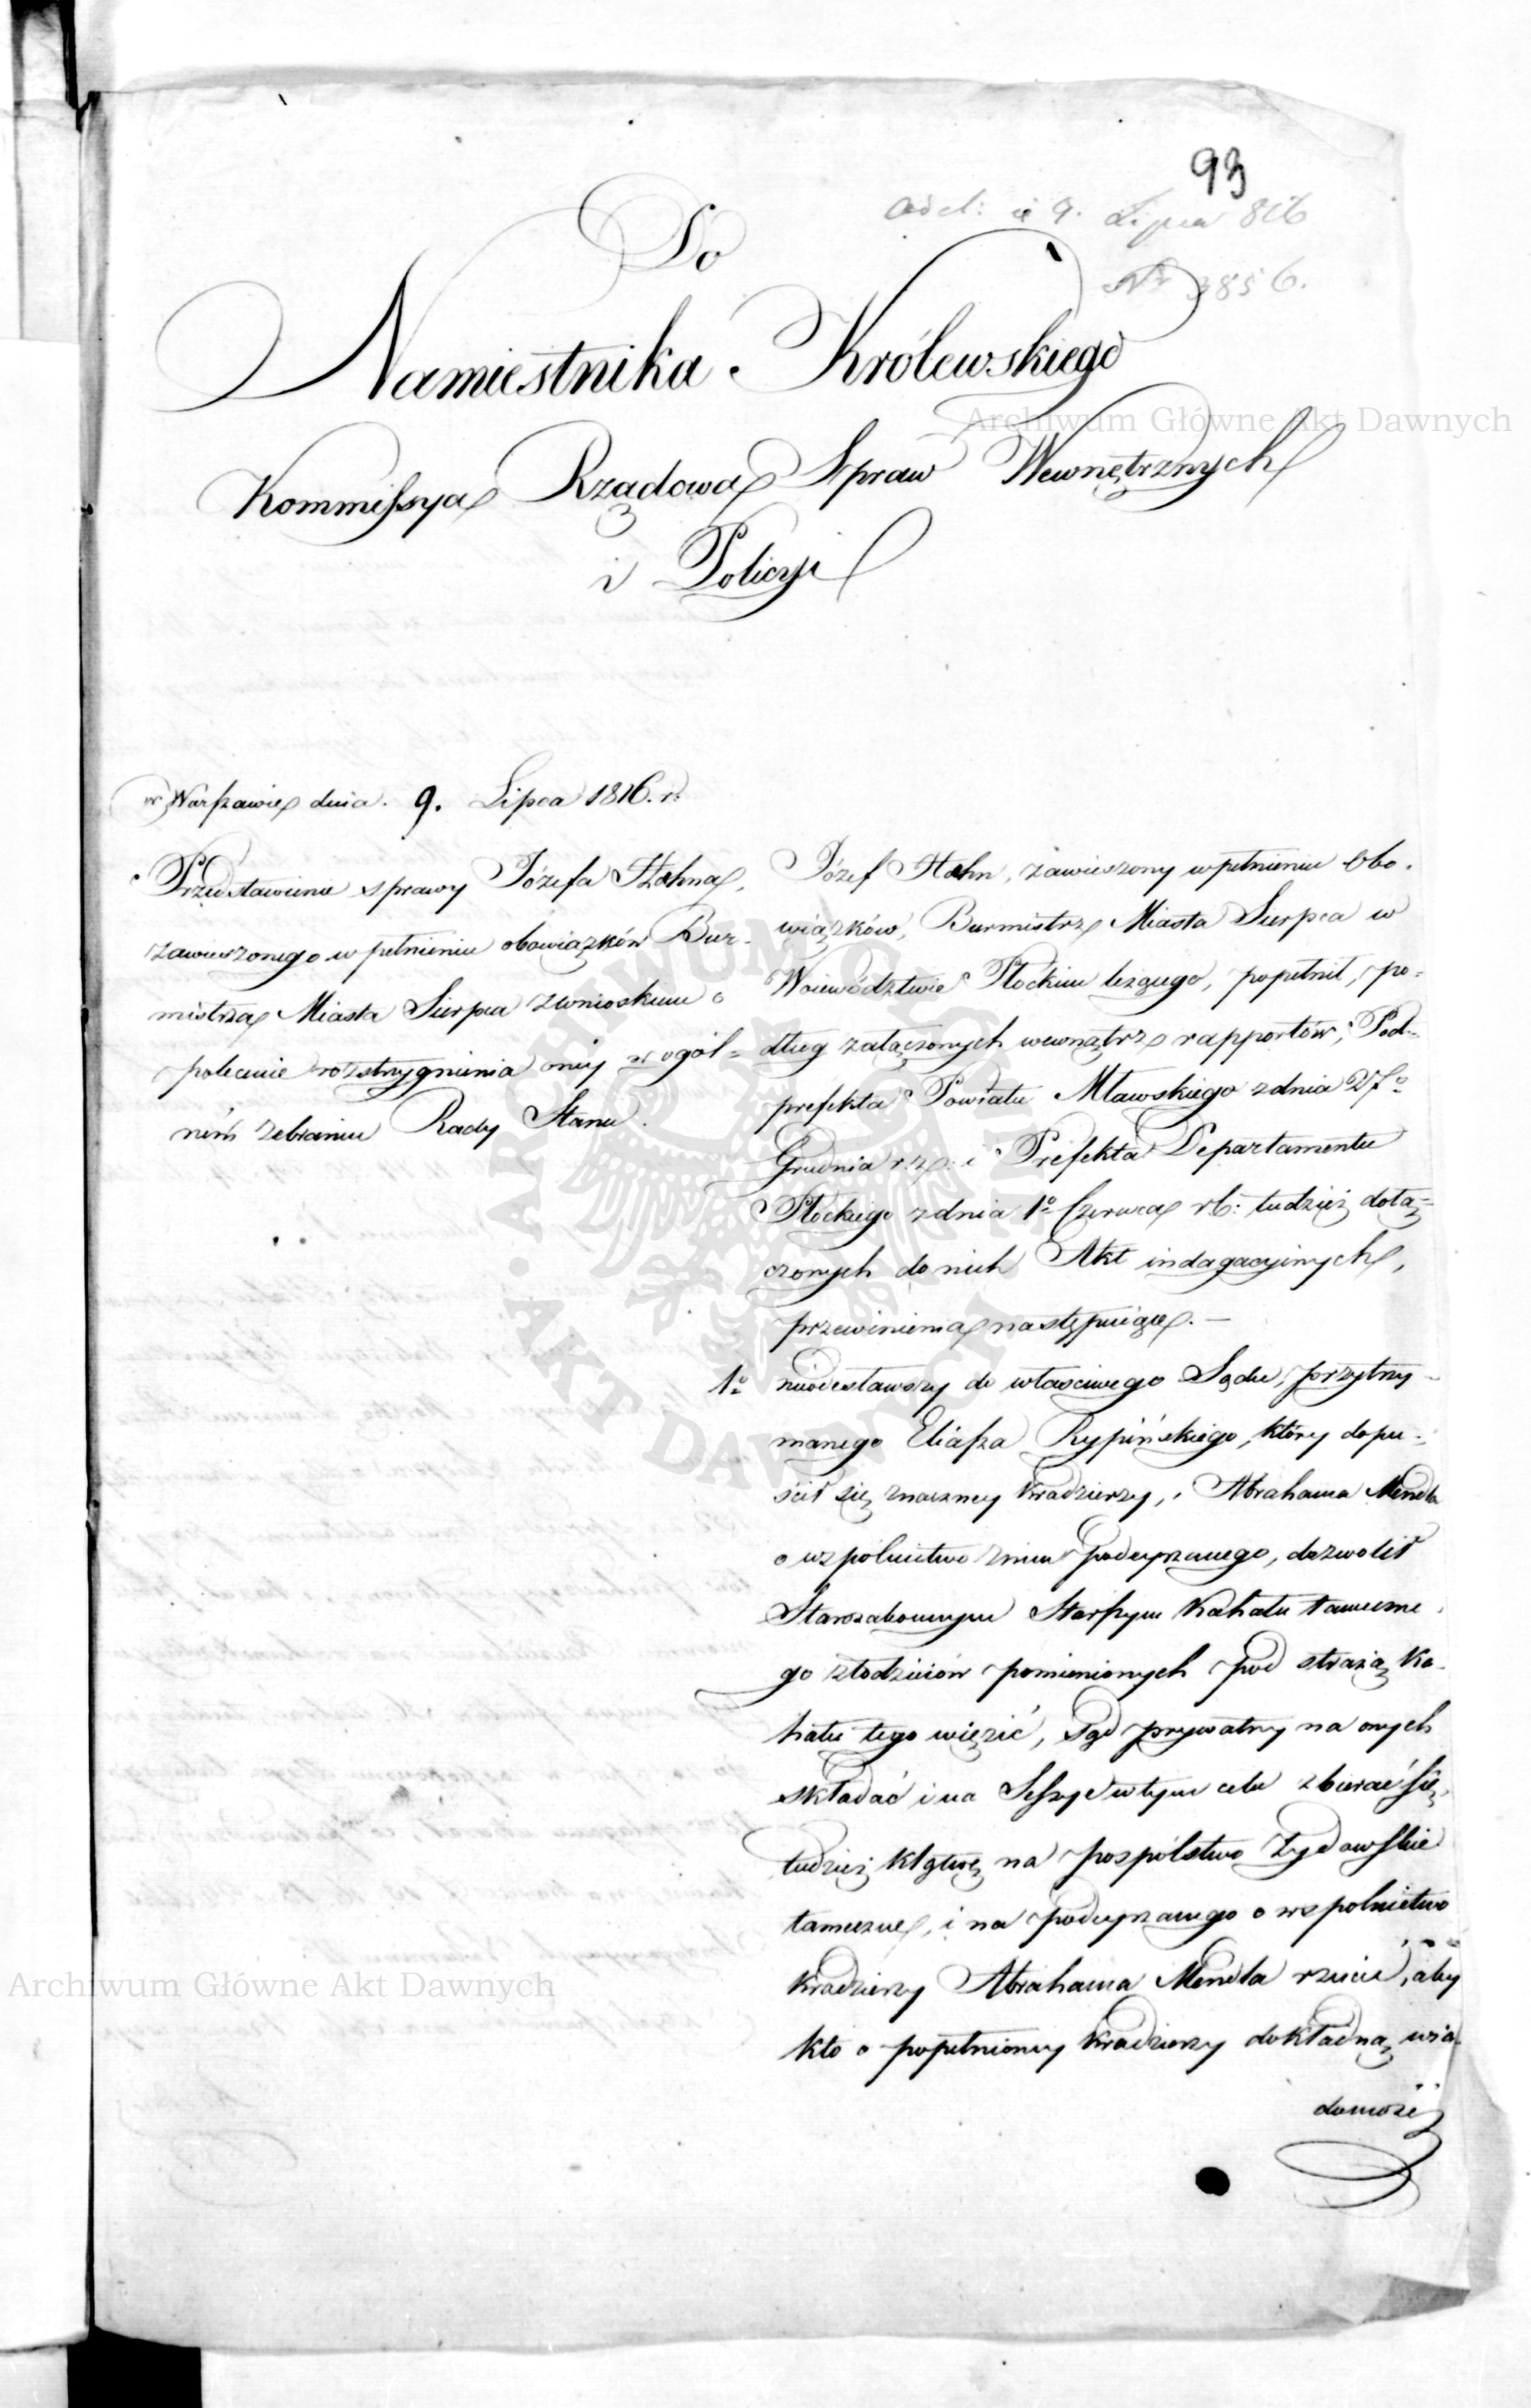 93
odel: d 9. Lipca 816
Nr 3856.
Do
Namiestnika Królewskiego
Kommissya Rządowa Spraw Wewnętrznych
i Policyi
w Warszawie dnia. 9. Lipca 1816. r.
Przedstawienie sprawy Józefa Hahna,
zawieszonego w pełnieniu obowiązków Bur-
mistrza Miasta Sierpca z wnioskiem o
polecenie rozstrzygnienia oney w ogól=
ném zebraniu Rady Stanu.
Józef Hahn, zawieszony w pełnieniu Obo-
wiązków, Burmistrz Miasta Sierpca w
Woiewództwie Płockim leżącego, popełnił, po=
dług załączonych wewnątrz rapportów, Pod-
prefekta Powiatu Mławskiego z dnia
Grudnia r. z. i Prefekta Departamentu
Płockiego z dnia 1o Czerwca r b: tudzież dołą=
czonych do nich Akt indagacyinych,
przewinienia następuiące. —
1o nieodesławszy do właściwego Sądu, przytrzy-
manego Eliasza Rypińskiego, który dopu-
ścił się znaczney kradzieży, i Abrahama Mendla
o wspólnictwo z nim podeyrzanego, dozwolił
Starozakonnym Starszym Kahału tameczne-
go złodzieiów pomienionych pod strażą Ka-
hału tego więzić, Sąd prywatny na onych
składać i na Sessye w tym celu zbierać się,
tudzież klątwę na pospólstwo Żydowskie
tameczne, i na podeyrzanego o wspólnictwo
kradzieży Abrahama Mendla rzucić, aby
kto o popełnioney kradzieży dokładną wia-
domość
Archiwum Główne Akt Dawnych
Archiwum Główne Akt Dawnych
ARCHIWUM GŁÓWNE
AKT DAWNYCH